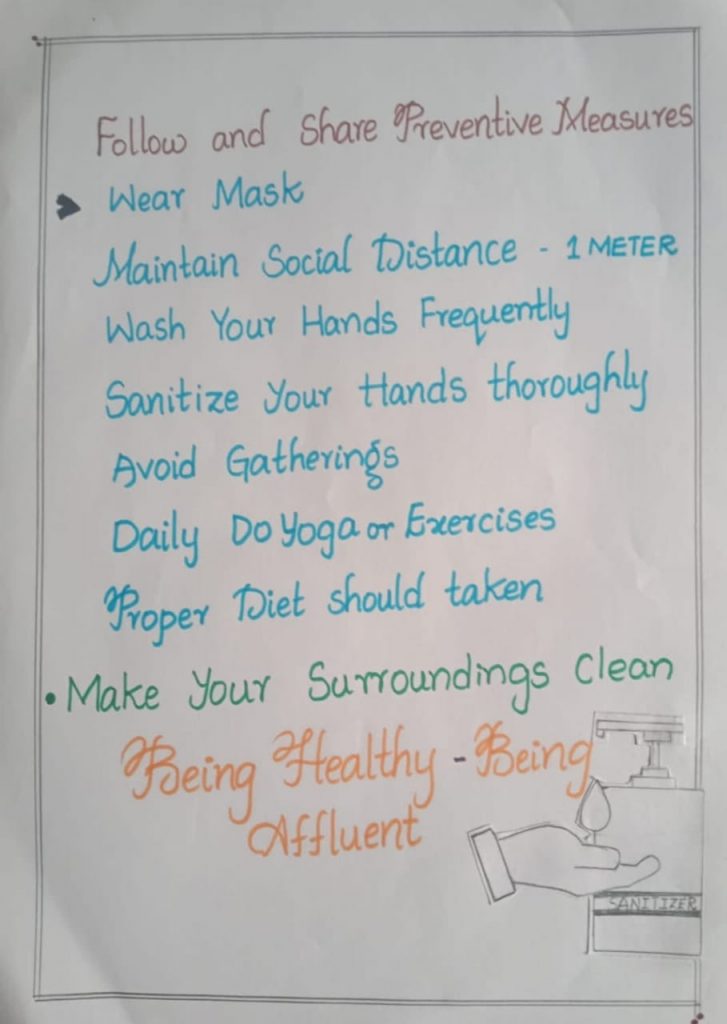 Follow and Share Preventive Measures
Wear Mask
Maintain Social Distance - 1 METER
Wash Your Hands Frequently
Sanitize Your Hands thoroughly
Avoid Gatherings
Daily Do Yoga or Exercises
Proper Diet should taken
• Make Your Surroundings Clean
Being Healthy - Being
Affluent
SANITIZER